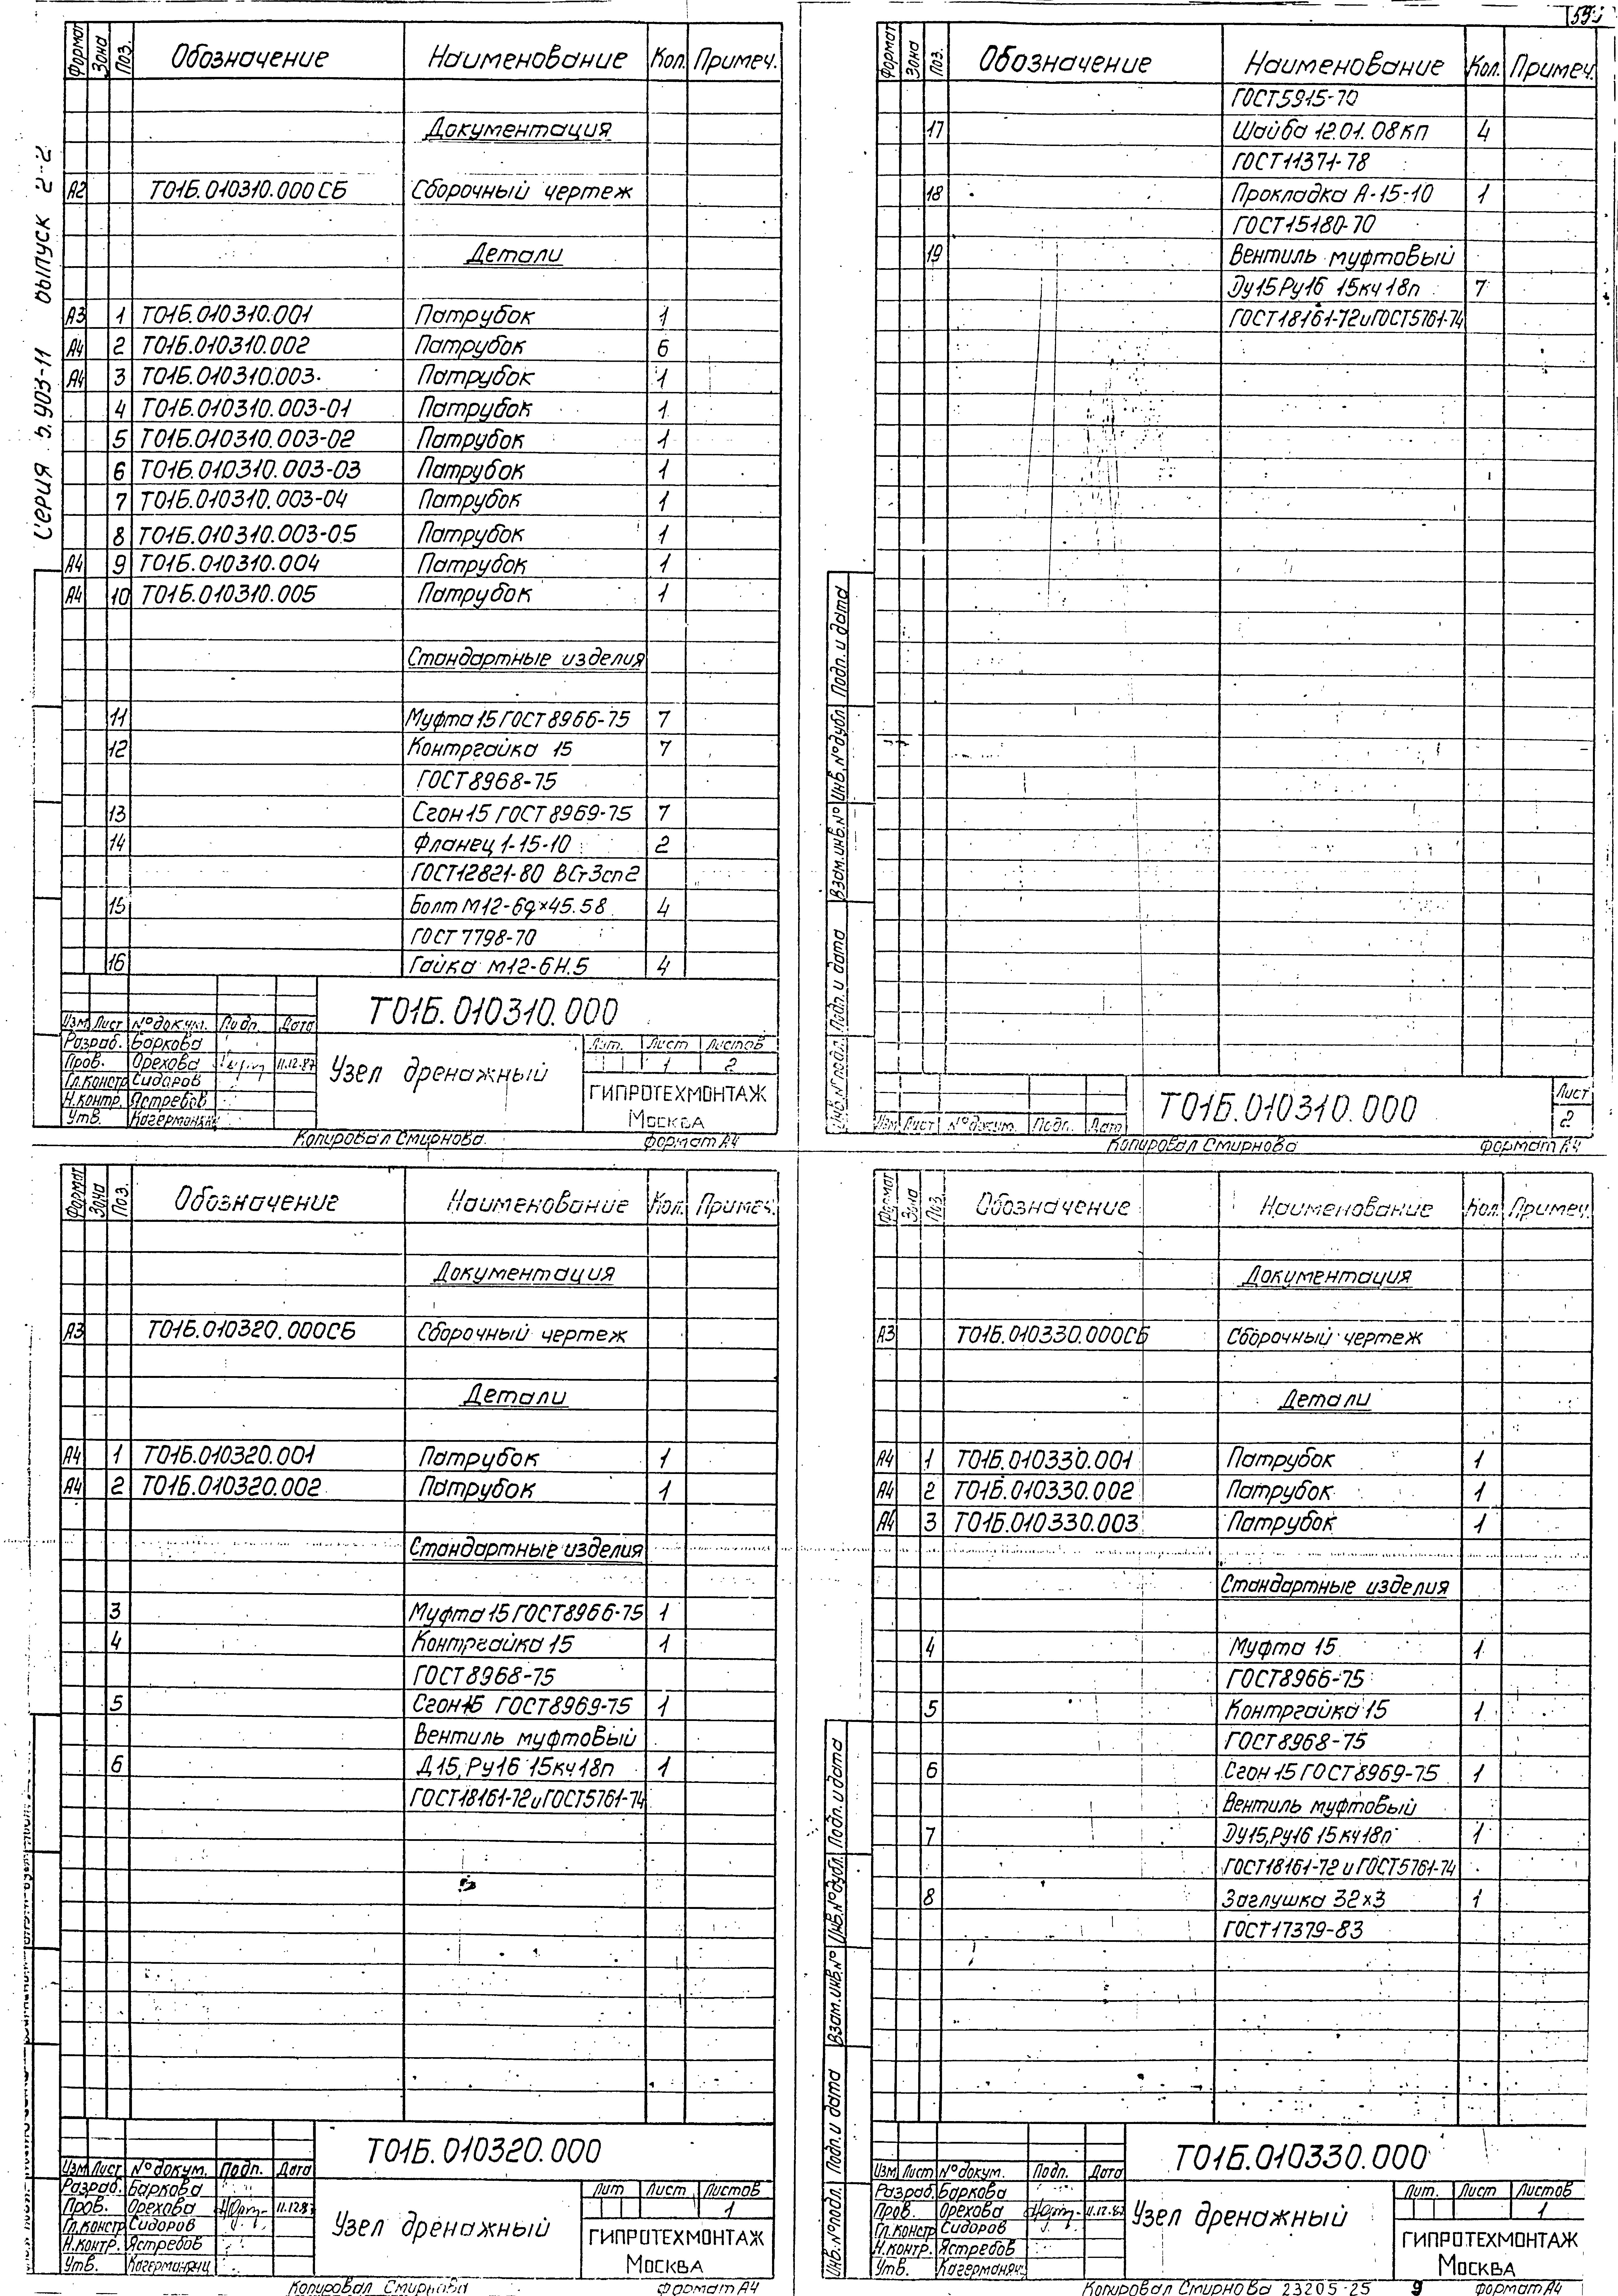 Серия 5.903-11 выпуск 2-2
Формат Зона Поз. Обозначение Наименование Кол. Примеч.
Документация
А2 Т01Б.010310.000СБ Сборочный чертеж
Детали
А3 1 Т01Б.010310.001 Патрубок 1
А4 2 Т01Б.010310.002 Патрубок 6
А4 3 Т01Б.010310.003 Патрубок 1
4 Т01Б.010310.003-01 Патрубок 1
5 Т01Б.010310.003-02 Патрубок 1
6 Т01Б.010310.003-03 Патрубок 1
7 Т01Б.010310.003-04 Патрубок 1
8 Т01Б.010310.003-05 Патрубок 1
А4 9 Т01Б.010310.004 Патрубок 1
А4 10 Т01Б.010310.005 Патрубок 1
Стандартные изделия
11 Муфта 15 ГОСТ 8966-75 7
12 Контргайка 15 7
ГОСТ 8968-75
13 Сгон 15 ГОСТ 8969-75 7
14 Фланец 1-15-10 2
ГОСТ 12821-80 ВСт3сп2
15 Болт М12-6g×45.58 4
ГОСТ 7798-70
16 Гайка М12-6Н.5 4
Т01Б.010310.000
Изм Лист № докум. Подп. Дата
Разраб. Баркова
Пров. Орехова 11.12.87
Гл.констр Сидоров
Н.контр. Ястребов
Утв.
Узел дренажный
Лит. Лист Листов
1 2
ГИПРОТЕХМОНТАЖ
Москва
Копировал Смирнова. формат А4
Формат Зона Поз. Обозначение Наименование Кол. Примеч.
ГОСТ 5915-70
17 Шайба 12.01.08кп 4
ГОСТ 11371-78
18 Прокладка А-15-10 1
ГОСТ 15180-70
19 Вентиль муфтовый
Dy15 Ру16 15кч18п 7
ГОСТ 18161-72 и ГОСТ 5761-74
Инв.№подл. Подп. и дата Взам.инв.№ Инв.№дубл. Подп. и дата
Изм Лист № докум. Подп. Дата
Т01Б.010310.000
Лист
2
Копировал Смирнова формат А4
Формат Зона Поз. Обозначение Наименование Кол. Примеч.
Документация
А3 Т01Б.010320.000СБ Сборочный чертеж
Детали
А4 1 Т01Б.010320.001 Патрубок 1
А4 2 Т01Б.010320.002 Патрубок 1
Стандартные изделия
3 Муфта 15 ГОСТ 8966-75 1
4 Контргайка 15 1
ГОСТ 8968-75
5 Сгон 15 ГОСТ 8969-75 1
Вентиль муфтовый
6 Д15, Ру16 15кч18п 1
ГОСТ 18161-72 и ГОСТ 5761-74
Т01Б.010320.000
Изм Лист № докум. Подп. Дата
Разраб. Баркова
Пров. Орехова 11.12.87
Гл.констр Сидоров
Н.контр. Ястребов
Утв.
Узел дренажный
Лит Лист Листов
1
ГИПРОТЕХМОНТАЖ
Москва
Копировал Смирнова формат А4
Формат Зона Поз. Обозначение Наименование Кол. Примеч.
Документация
А3 Т01Б.010330.000СБ Сборочный чертеж
Детали
А4 1 Т01Б.010330.001 Патрубок 1
А4 2 Т01Б.010330.002 Патрубок 1
А4 3 Т01Б.010330.003 Патрубок 1
Стандартные изделия
4 Муфта 15 1
ГОСТ 8966-75
5 Контргайка 15 1
ГОСТ 8968-75
6 Сгон 15 ГОСТ 8969-75 1
Вентиль муфтовый
7 Dy15, Ру16 15кч18п 1
ГОСТ 18161-72 и ГОСТ 5761-74
8 Заглушка 32×3 1
ГОСТ 17379-83
Инв.№подл. Подп. и дата Взам.инв.№ Инв.№дубл. Подп. и дата
Т01Б.010330.000
Изм Лист № докум. Подп. Дата
Разраб. Баркова
Пров. Орехова 11.12.87
Гл.констр Сидоров
Н.контр. Ястребов
Утв.
Узел дренажный
Лит. Лист Листов
1
ГИПРОТЕХМОНТАЖ
Москва
Копировал Смирнова 23205-25 9 формат А4